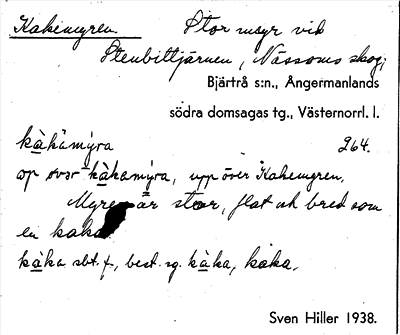 Kakemyren. Stor myr vid
Stenbittjärnen, Nässoms skog;
Bjärtrå s:n., Ångermanlands
södra domsagas tg., Västernorrl. l.
kàkämýra 264.
op övər kàkamýra, upp över Kakemyren.
Myren är stor, flat och bred som
en kaka
kàka sbt. f., best. sg. kàka, kaka.
Sven Hiller 1938.